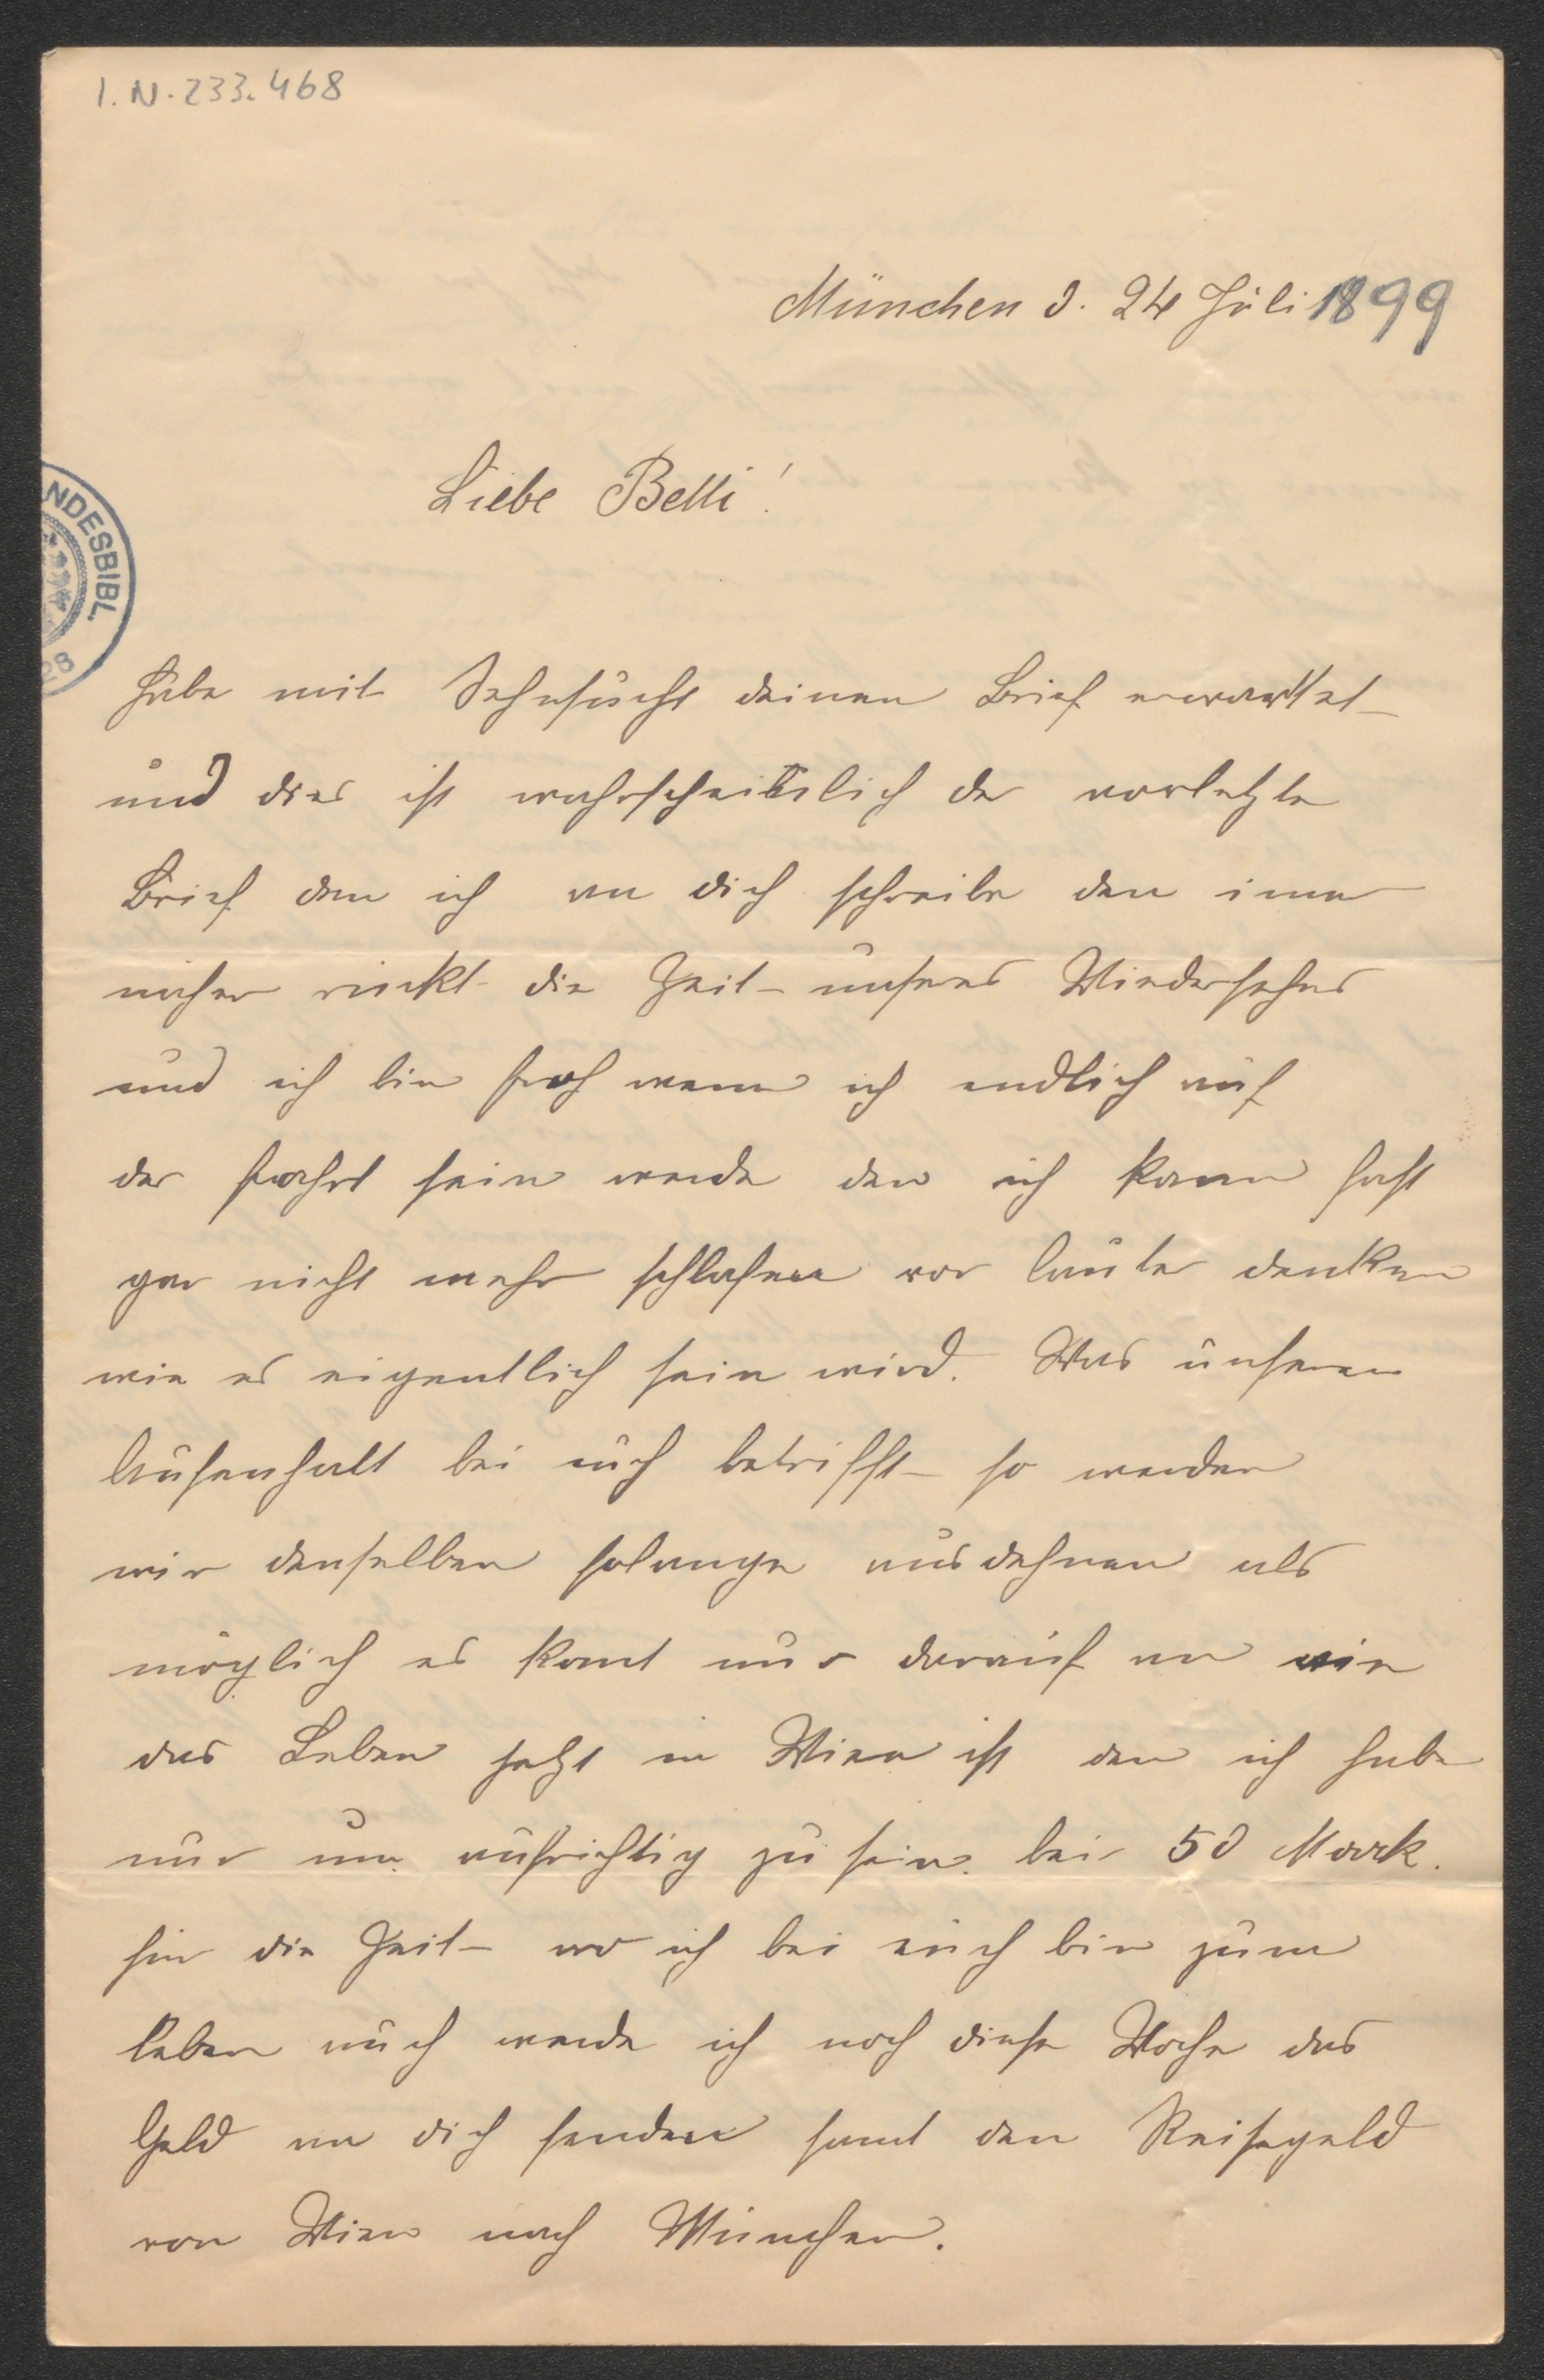 I.N. 233.468
München d. 24 Juli 1899
NDESBIBL.
Liebe Betti!
habe mit Sehnsucht deinen Brief erwarttet
und dies ist wahrscheinlich der vorletzte
Brief den ich an dich schreibe den imer
näher rückt die Zeit unseres Wiedersehns
und ich bin froh wenn ich endlich auf
der Fahrt sein werde den ich kann fast
gar nicht mehr schlafen vor lauter denken
wie es eigentlich sein wird. Was unseren
Aufenhalt bei euch betrifft so werden
wir denselben solange ausdehnen als
möglich es komt nur darauf an wie
das Leben jetzt in Wien ist den ich habe
nur um aufrichtig zu sein bei 50 Mark.
für die Zeit wo ich bei euch bin zum
leben auch werde ich noch diese Woche das
Geld an dich senden samt den Reisegeld
von Wien nach München.